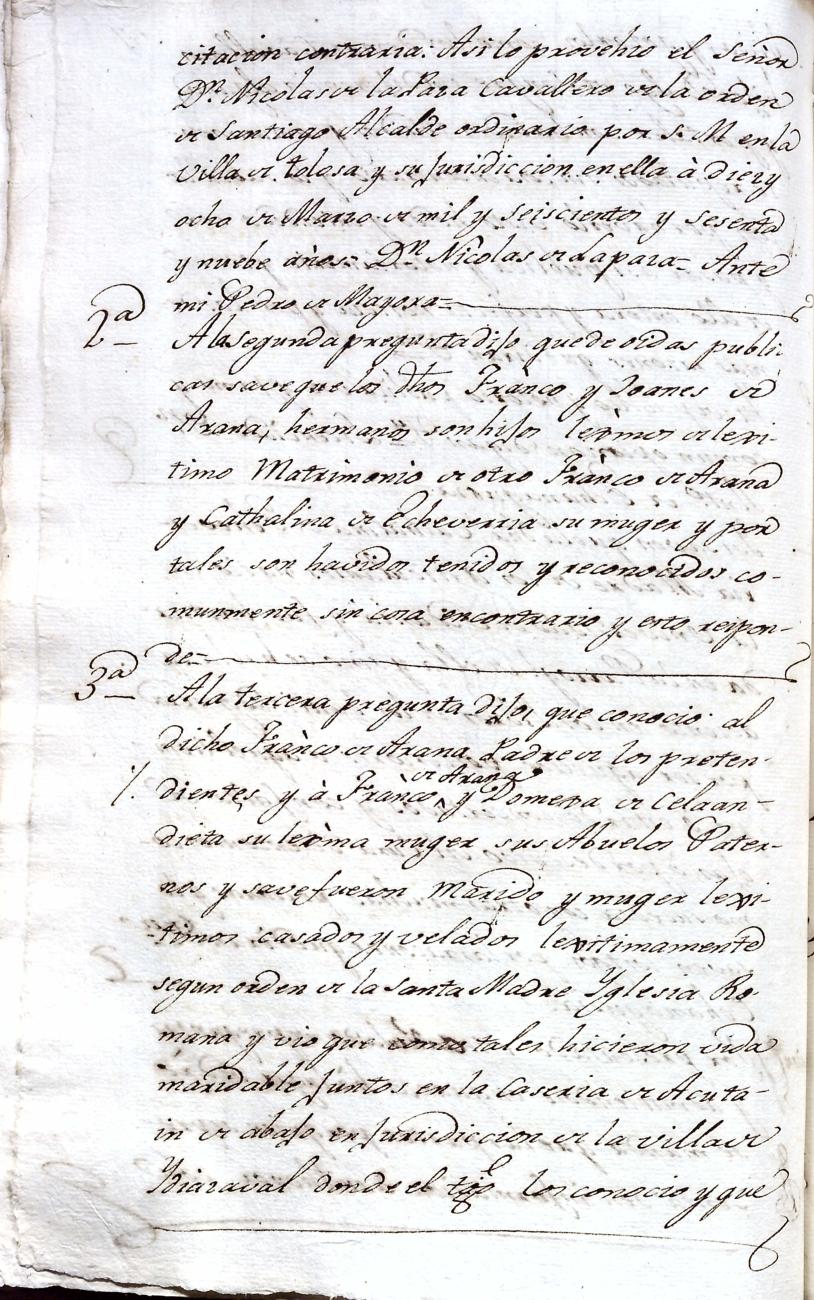 citacion contraria: Asi lo provehio el Señor
Dn. Nicolas de la Paza Cavallero de la orden
de Santiago Alcalde ordinario por s. M en la
Villa de tolosa y su Jurisdiccion en ella à diez y
ocho de Marzo de mil y seiscientos y sesenta
y nuebe años= Dn. Nicolas de Lapaza= Ante
mi Pedro de Mayora=
2a A la Segunda pregunta dijo que de oidas publi
cas save que los dhos Franco y Joanes de
Arana, hermanos son hijos lexmos de lexi-
timo Matrimonio de otro Franco de Arana
y Cathalina de Echeverria su muger y por
tales son havidos tenidos y reconocidos co-
munmente sin cosa encontrario y esto respon-
de=
3a A la tercera pregunta dijo, que conocio al
dicho Franco de Arana Padre de los preten-
de Arana
dientes y à Franco y Domenxa de Celaan-
dieta su lexma muger sus Abuelos Pater-
nos y save fueron Marido y muger lexi-
timos casados y velados lexitimamente
segun orden de la Santa Madre Yglesia Ro-
mana y vio que como tales hicieron vida
maridable Juntos en la Caseria de Acuta-
in de abajo en Jurisdiccion de la villa de
Ydiazaval donde el tgo los conocio y que